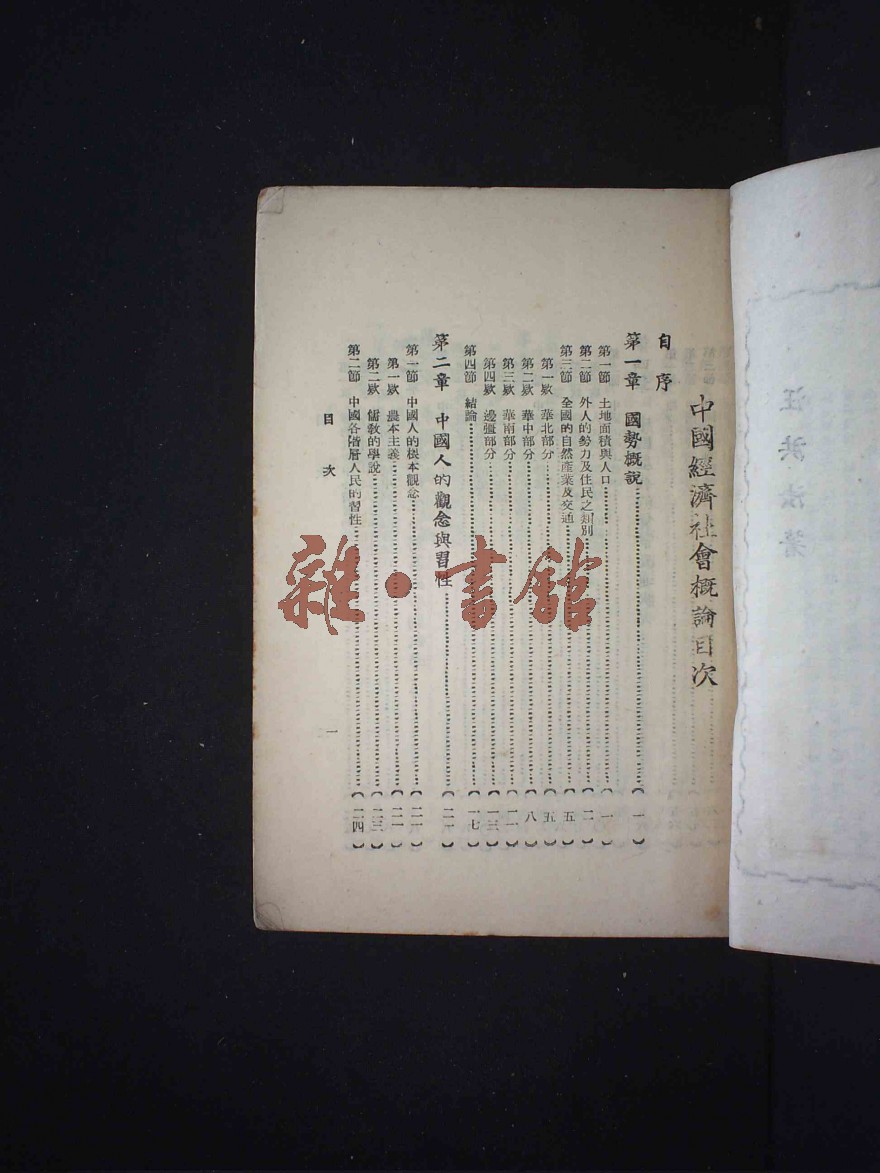 中國經濟社會概論目次
自序
第一章 國勢概說……(一)
第一節 土地面積與人口……(一)
第二節 外人的勢力及住民之類別……(二)
第三節 全國的自然產業及交通……(五)
第一欵 華北部分……(五)
第二欵 華中部分……(八)
第三欵 華南部分……(一一)
第四欵 邊疆部分……(一三)
第四節 結論……(一七)
第二章 中國人的觀念與習性……(二一)
第一節 中國人的根本觀念……(二一)
第一欵 農本主義……(二一)
第二欵 儒教的學說……(二三)
第二節 中國各階層人民的習性……(二四)
目次
一
雜·書館